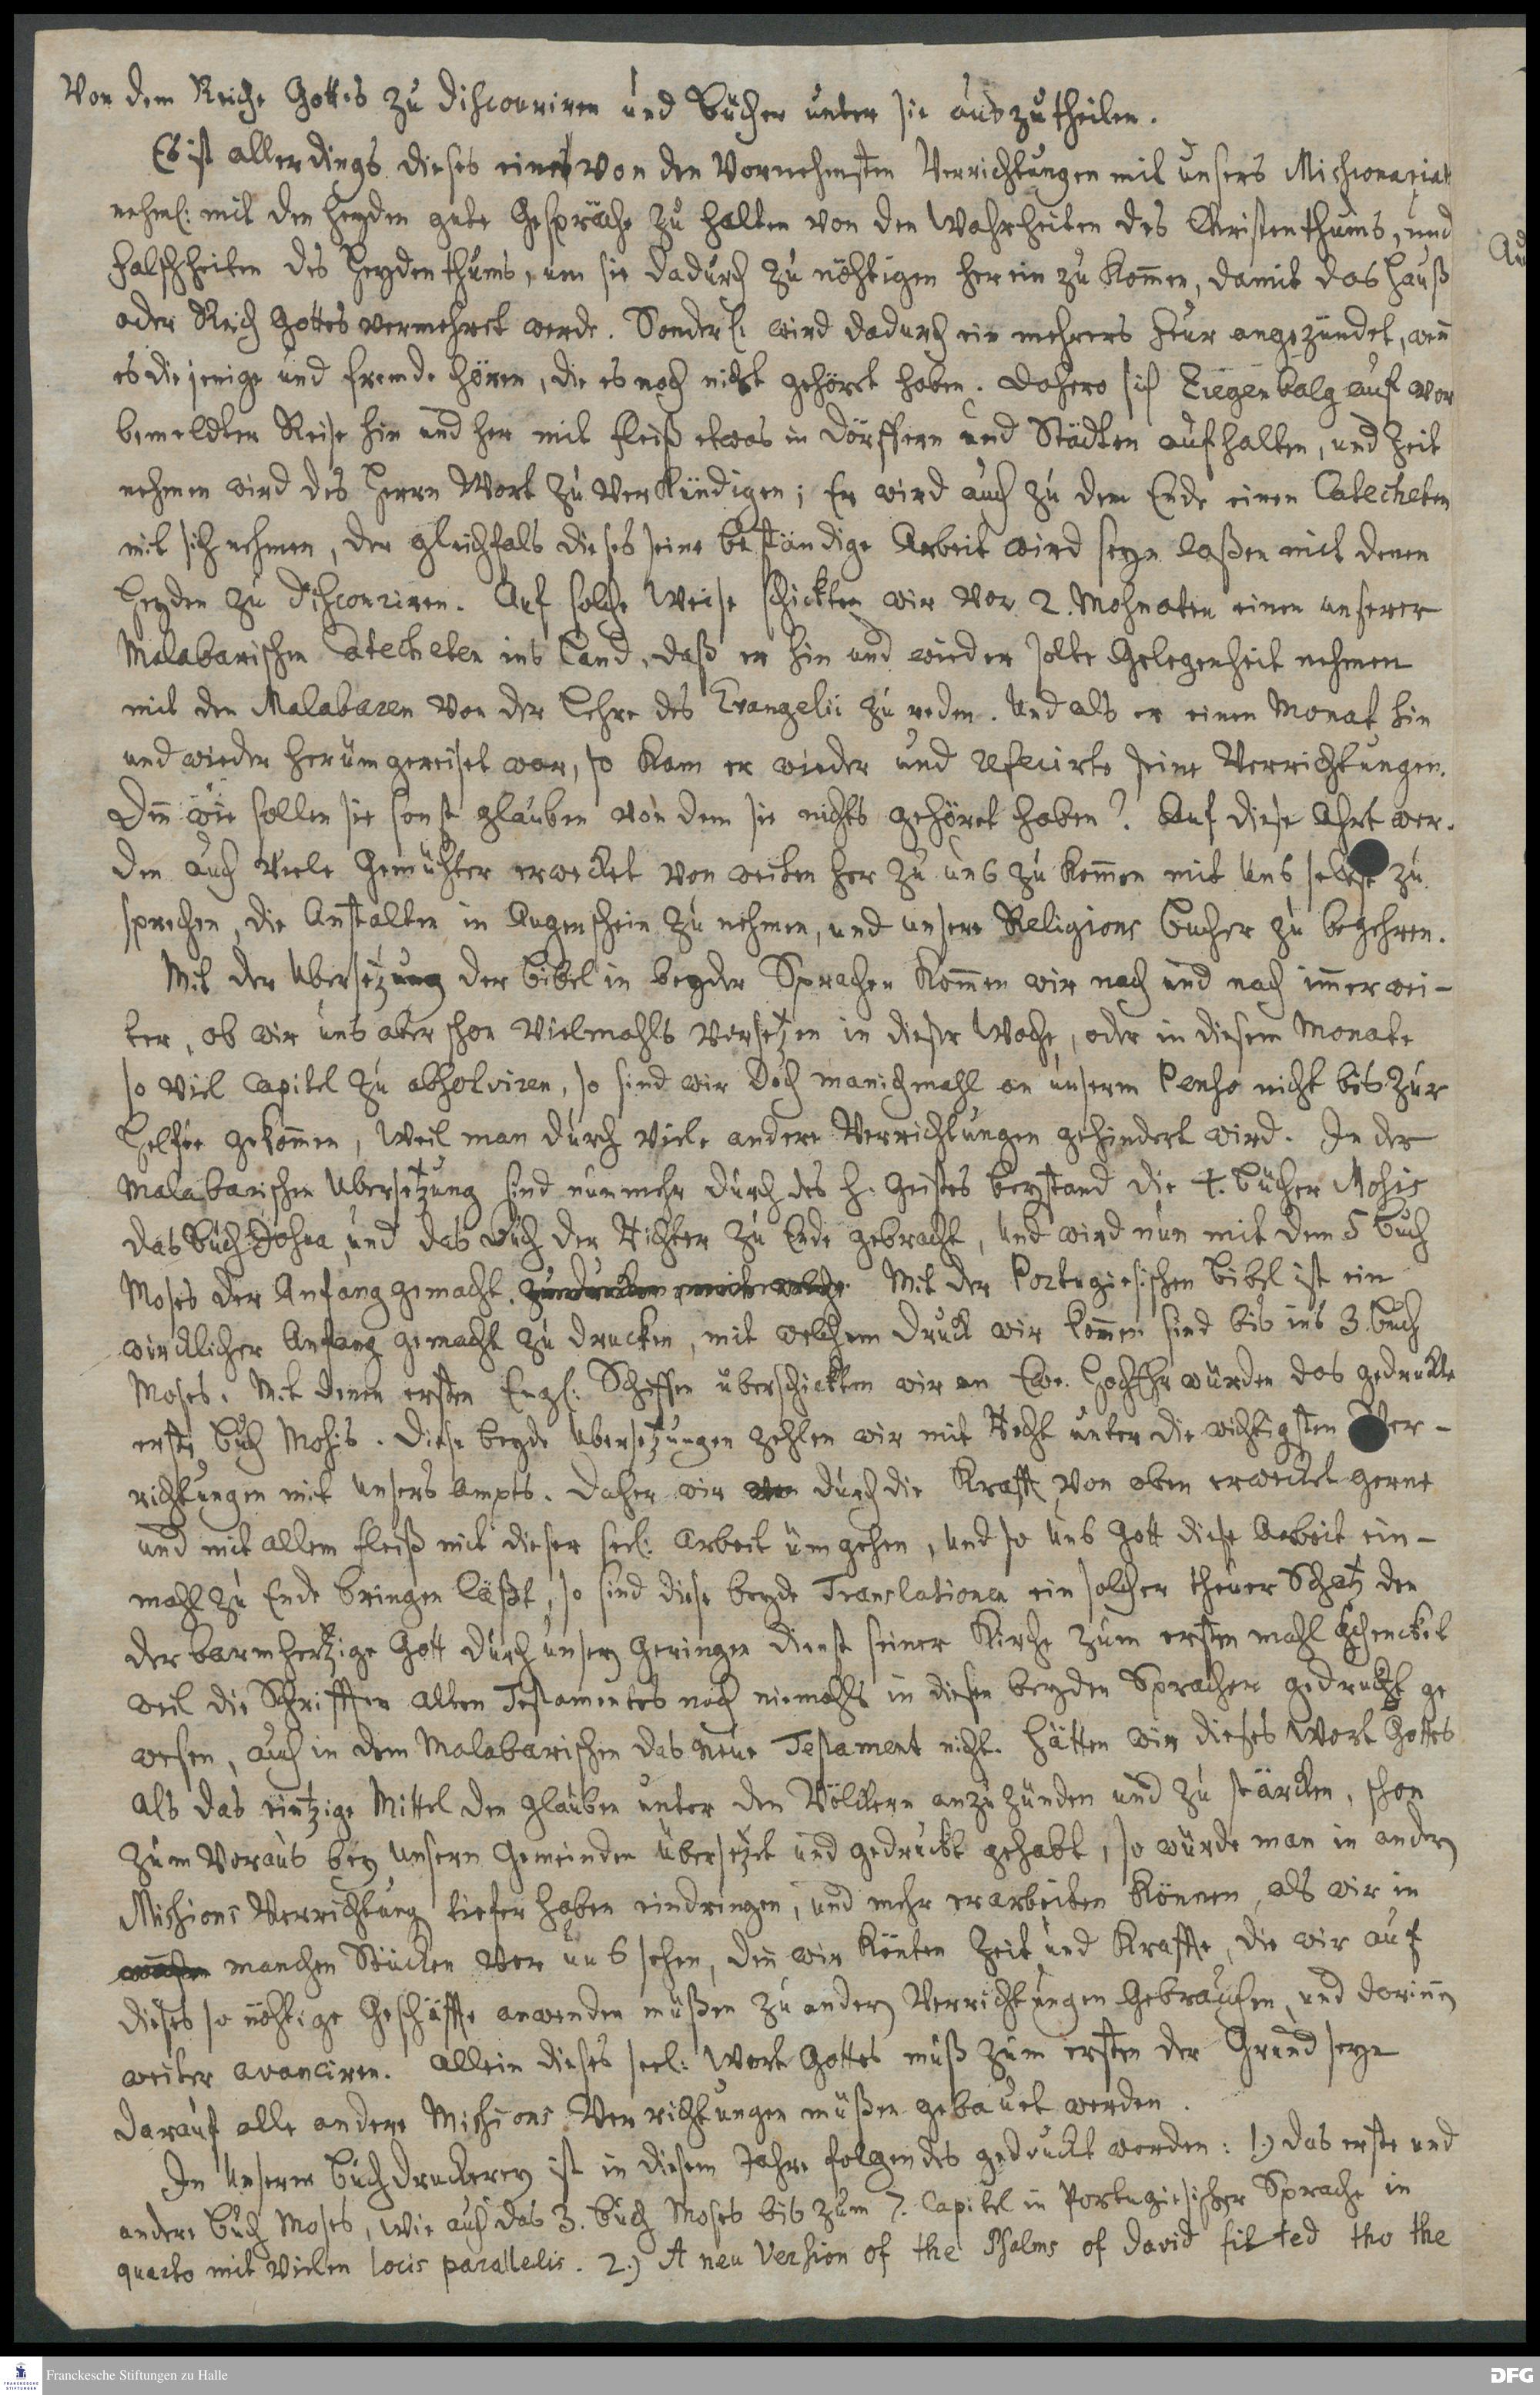 Von dem Reiche Gottes zu discouriren und Bücher unter sie auszutheilen.
Es ist allerdings dieses eines von den Vornehmsten Verrichtungen mit unsers Missionariats
nehml: mit den Heyden gute Gespräche zu halten von den Wahrheiten des Christenthums, und
Falschheiten des Heydenthums, um sie dadurch zu nöhtigen herein zu kom̄en, damit das Hauß
oder Reich Gottes vermehret werde. Sonderl: wird dadurch ein mehrers Feur angezündet, wen̄
es diejenige und fremde hören, die es noch nicht gehöret haben. Dahero sich Ziegenbalg auf vor
bemeldter Reise hin und her mit Fleiß etwas in Dörffern und Städten aufhalten, und Zeit
nehmen wird des Herrn Wort zu verkündigen; Er wird auch zu dem Ende einen Catecheten
mit sich nehmen, der gleichfals dieses seine beständige Arbeit wird seyn laßen mit denen
Heyden zu discouriren. Auf solche Weise schickten wir vor 2. Mohnaten einen unserer
Malabarischen Catecheten ins Land, daß er hin und wieder solte Gelegenheit nehmen
mit den Malabaren von der Lehre des Evangelii zu reden. Und als er einen Monat hin
und wieder herumgereiset war, so kam er wieder und referirte seine Verrichtungen.
Den̄ wie sollen sie sonst glauben von dem sie nichts gehöret haben? Auf diese Ahrt wer-
den auch viele Gemühter erwecket von weiten her zu uns zu kom̄en mit uns selbst zu
sprechen, die Anstalten in Augenschein zu nehmen, und unsere Religions Bücher zu begehren.
Mit der Ubersetzung der Bibel in beyder Sprachen kom̄en wir nach und nach im̄er wei-
ter, ob wir uns aber schon vielmahls vorsetzen in dieser Woche, oder in diesem Monate
so viel Capitel zu absolviren, so sind wir doch manichmahl an unserm Penso nicht bis zur
Helfte gekom̄en, weil man durch viele andere Verrichtungen gehindert wird. In der
Malabarischen Ubersetzung sind nunmehr durch des H. Geistes Beystand die 4. Bücher Mosis
das Buch Josua, und das Buch der Richter zu Ende gebracht, und wird nun mit dem 5 Buch
Moses der Anfang gemacht. Mit der Portugiesischen Bibel ist ein
wircklicher Anfang gemacht zu drucken, mit welchem Druck wir kom̄en sind bis ins 3. Buch
Moses. Mit denen ersten Engl: Schiffen überschickten wir an Ew. HochEhrwürden das gedruckte
erste Buch Mosis. Diese beyde Ubersetzungen zehlen wir mit Recht unter die wichtigsten Ver-
richtungen mit unsers Ampts. Daher wir durch die Krafft von oben erwecket gerne
und mit allem Fleiß mit dieser seel: Arbeit umgehen, und so uns Gott diese Arbeit ein-
mahl zu Ende bringen läßt, so sind diese beyde Translationen ein solcher theurer Schatz den
der barmhertzige Gott durch unsern geringen Dienst seiner Kirche zum ersten mahl schencket
weil die Schrifften Alten Testamentes noch niemahls in diesen beyden Sprachen gedruckt ge
wesen, auch in dem Malabarischen das Neue Testament nicht. Hätten wir dieses Wort Gottes
als das eintzige Mittel den Glauben unter den Völckern anzuzünden und zu stärcken, schon
zum Voraus bey unsern Gemeinden übersetzt und gedruckt gehabt, so würde man in andern
Missions Verrichtung tiefer haben eindringen, und mehr erarbeiten können, als wir in
manchen Stücken vor uns sehen, den̄ wir könten Zeit und Kräffte, die wir auf
dieses so nöhtige Geschäffte anwenden müßen zu andern Verrichtungen gebrauchen, und darinnen
weiter avanciren. Allein dieses seel: Wort Gottes muß zum ersten der Grund seyn
darauf alle andere Missions Verrichtungen müßen gebauet werden.
In unserm Buchdruckerey ist in diesem Jahre folgendes gedruckt worden: 1.) das erste und
andere Buch Moses, wie auch das 3. Buch Moses bis zum 7. Capitel in Portugiesischer Sprache in
quarto mit vielen locis parallelis. 2.) A neu Version of the Psalms of David fitted tho the
Franckesche Stiftungen zu Halle
DFG